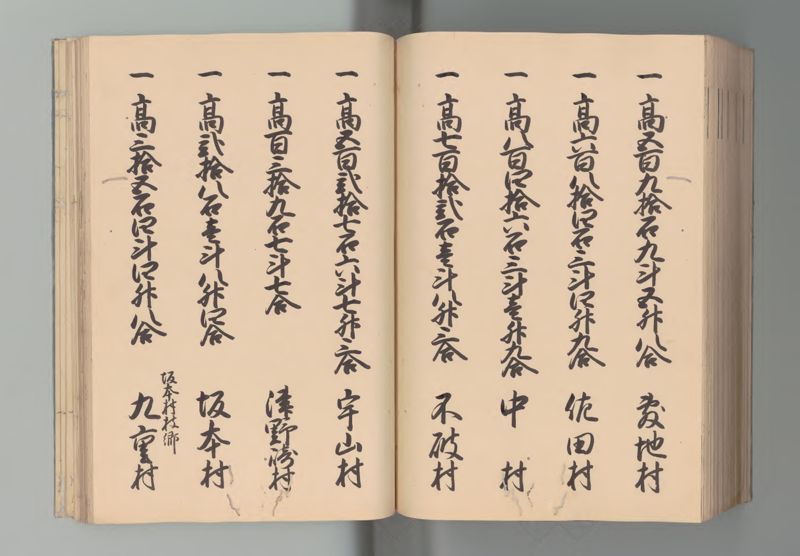 一 髙五百九拾石九斗五升八合 敷地村
一 髙六百八拾四石三斗四升九合 佐田村
一 髙八百四拾六石三斗壱升九合 中村
一 髙七百拾弐石壱斗八升三合 不破村
一 髙五百弐拾七石六斗七升三合 宇山村
一 髙百三拾九石七斗七合 津野崎村
一 髙弐拾八石壱斗八升四合 坂本村
坂本村枝郷
一 髙三拾五石四斗四升八合 九重村